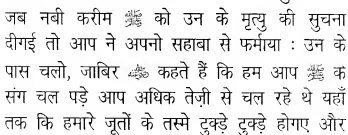 जब नबी करीम ﷺ को उन के मृत्यु की सुचना
दीगई तो आप ने अपनो सहाबा से फर्माया : उन के
पास चलो, जाबिर ﷺ कहते हैं कि हम आप ﷺ के
संग चल पड़े आप अधिक तेज़ी से चल रहे थे यहाँ
तक कि हमारे जूतों के तस्मे टुक्ड़े टुक्ड़े होगए और